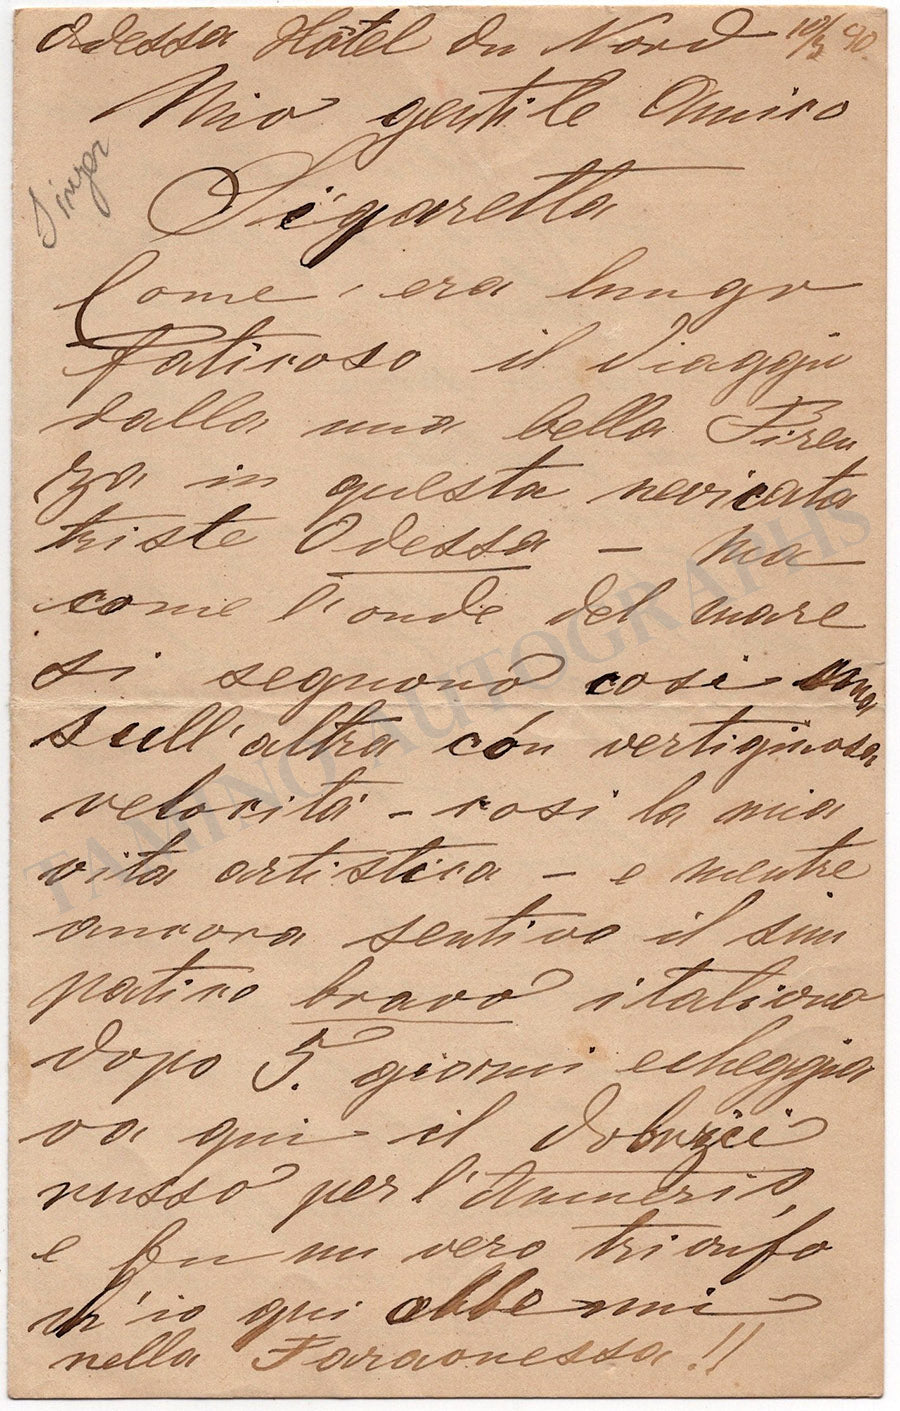 Odessa Hôtel du Nord 10/3 90.
Mio gentile Amico
Singer
Sigaretta
Come, era lungo
faticoso il viaggio
dalla mia bella Firen
za in questa nevicata
triste Odessa – ma
come l'onde del mare
si seguono cosi una
sull'altra cón vertiginosa
velocità – cosi la mia
vita artistica – e mentre
ancora sentivo il sim
patico bravo italiano
dopo 5. giorni echeggia
va qui il
russo per l'Amneris,
e fu un vero trionfo
ch'io qui ebbe mi
nella Faraonessa!!
TAMINO AUTOGRAPHS